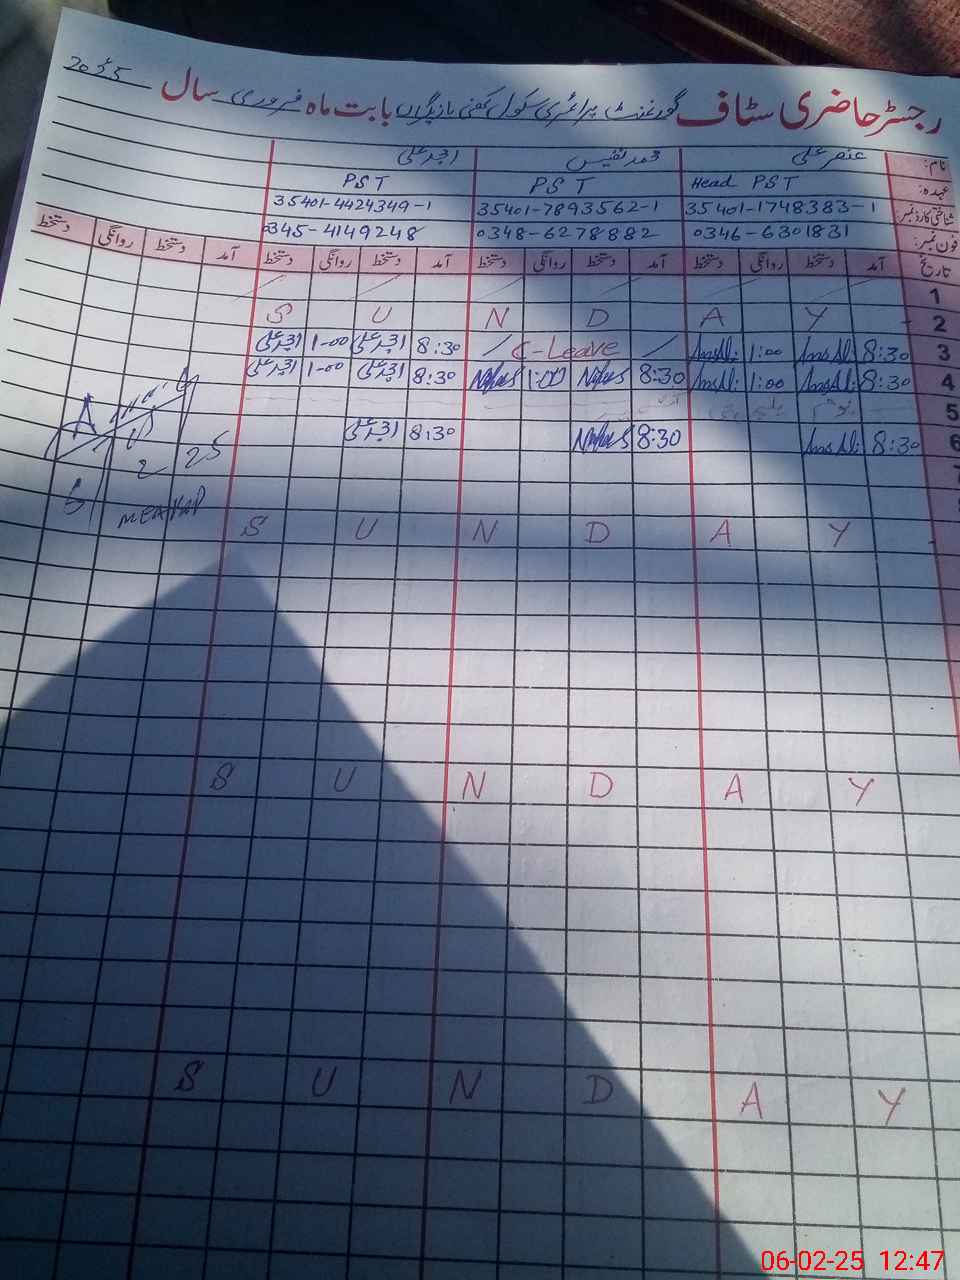 رجسٹر حاضری سٹاف گورنمنٹ پرائمری سکول کفنی بازیگراں بابت ماہ فروری سال 2025
نام: عنصر علی محمد نفیس امجد علی
عہدہ: Head PST PST PST
شناختی کارڈ نمبر: 35401-1748383-1 35401-7893562-1 35401-4424349-1
فون نمبر: 0346-6301831 0348-6278882 0345-4149248
تاریخ آمد دستخط روانگی دستخط آمد دستخط روانگی دستخط آمد دستخط روانگی دستخط آمد دستخط روانگی دستخط
1
2 S U N D A Y
3 8:30 AnsAli 1:00 AnsAli C-Leave 8:30 امجد علی 1-00 امجد علی
4 8:30 AnsAli 1:00 AnsAli 8:30 Nafees 1:00 Nafees 8:30 امجد علی 1-00 امجد علی
5
6 8:30 AnsAli 8:30 Nafees 8:30 امجد علی
7
2 25
S U N D A Y
S U N D A Y
S U N D A Y
06-02-25 12:47